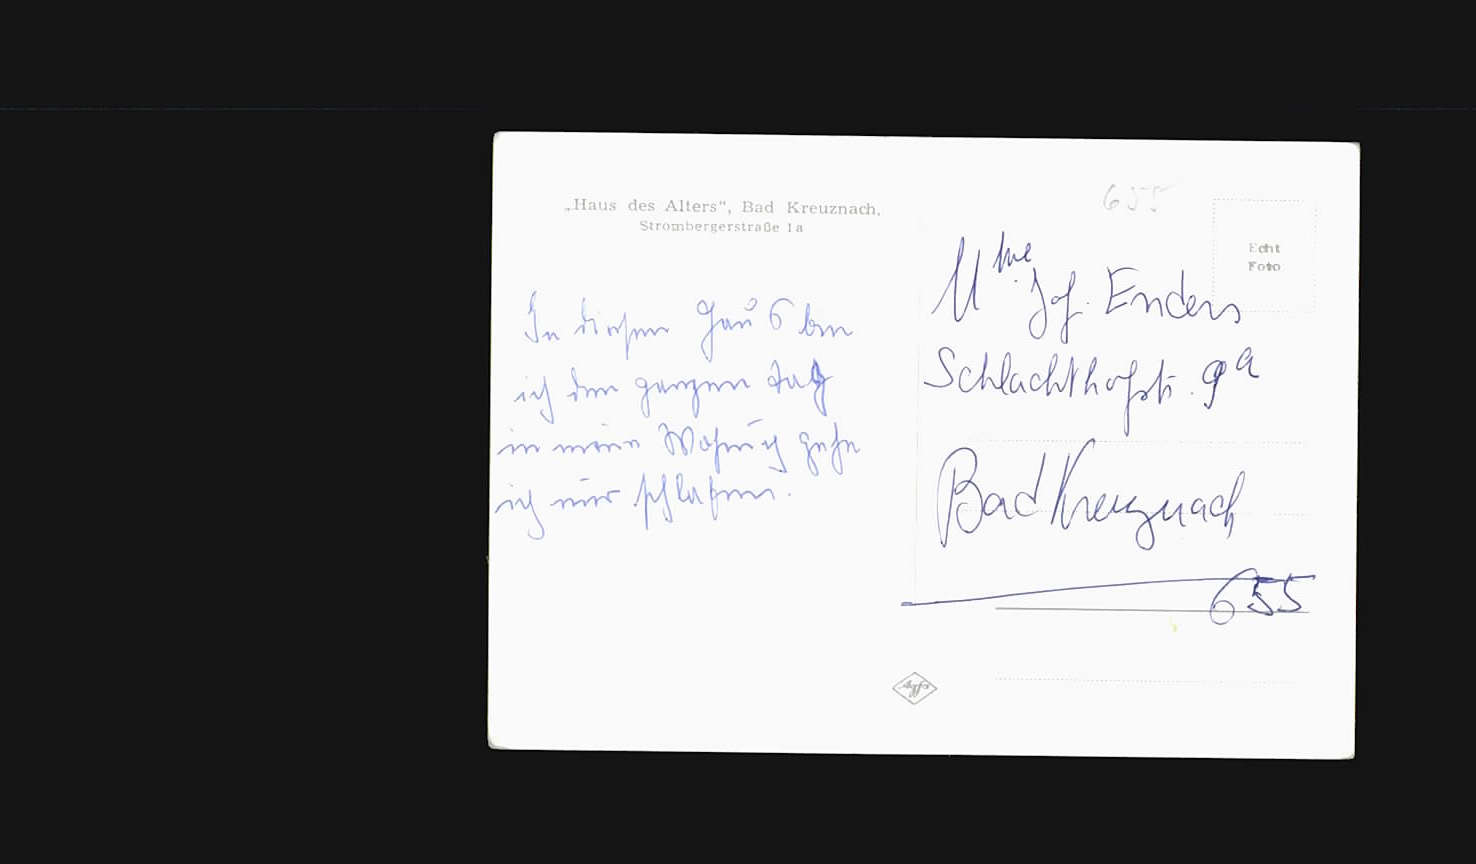 „Haus des Alters“, Bad Kreuznach,
Strombergerstraße 1a
655
Echt
Foto
In diesem Haus bin
ich den ganzen Tag
in meine Wohnung gehe
ich nur schlafen.
Mme. Jos. Enders
Schlachthofstr. 9a
Bad Kreuznach
655
Agfa